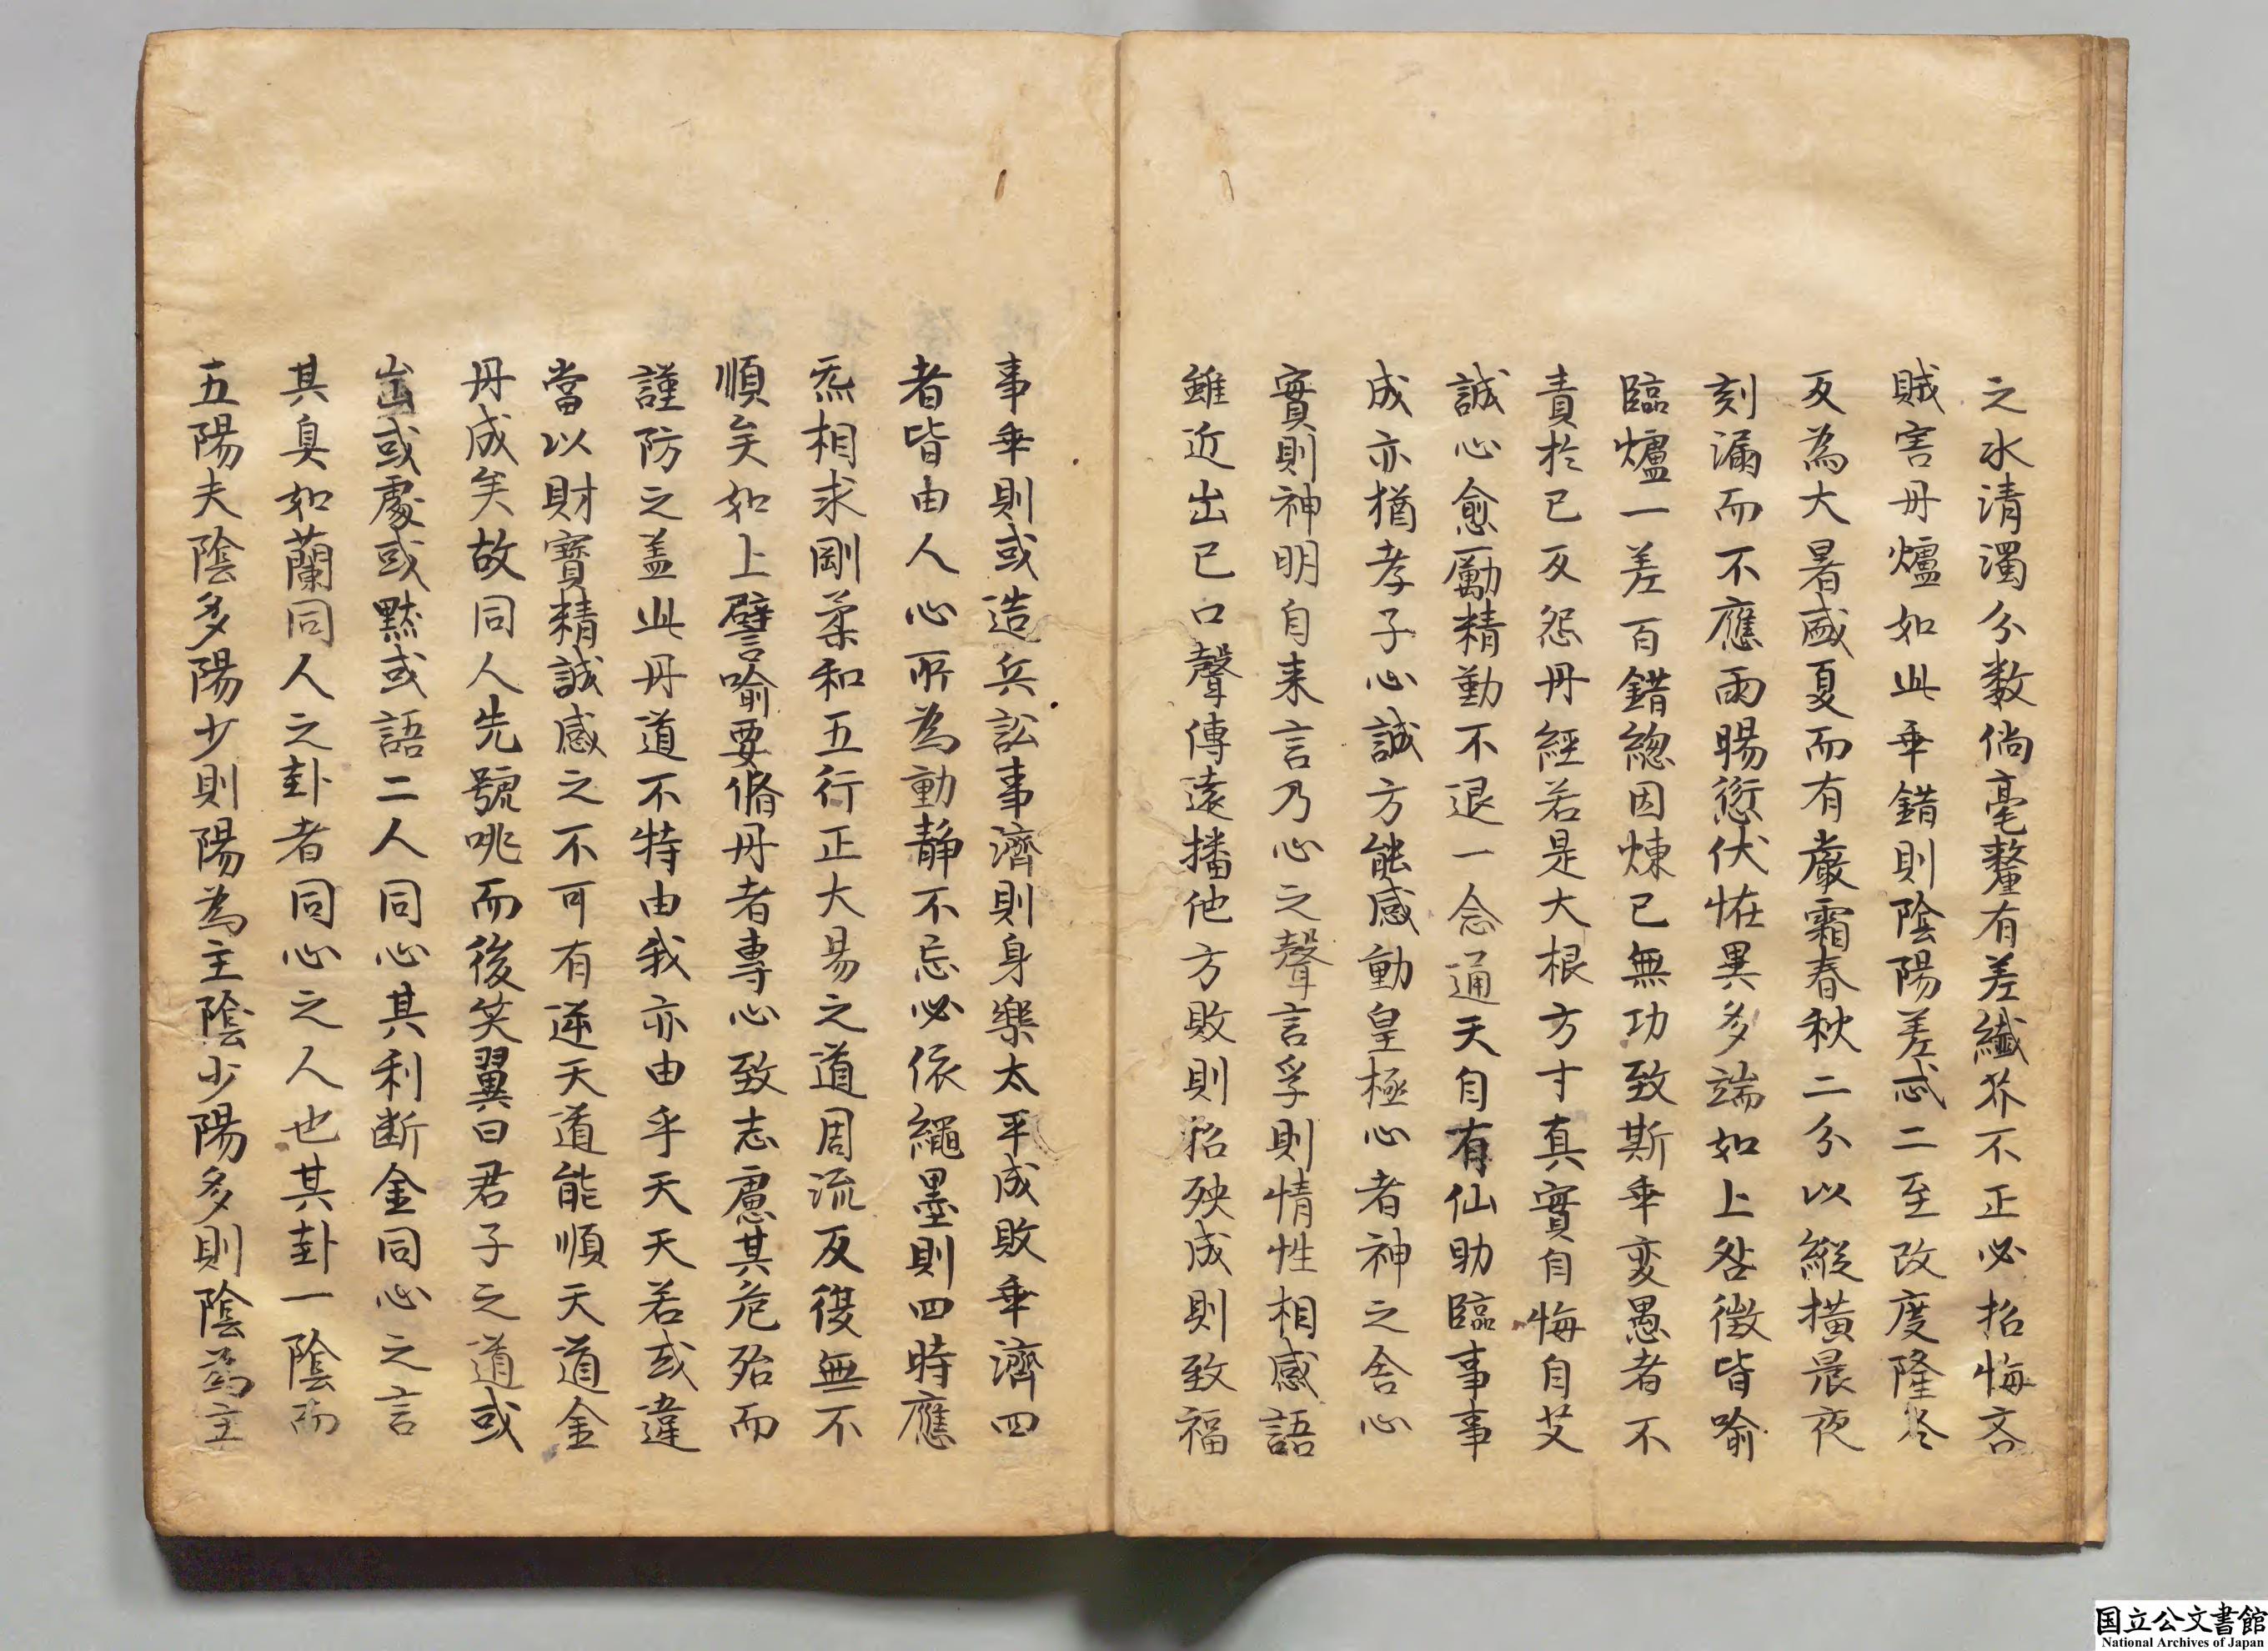 之水清濁分数倘毫釐有差纖芥不正必招悔吝
賊害丹爐如此乖錯則陰陽差忒二至改度隆冬
反為大暑盛夏而有嚴霜春秋二分以縱橫晨夜
刻漏而不應雨暘愆伏恠異多端如上咎徴皆喻
臨爐一差百錯緫因煉已無功致斯乖変愚者不
責於已反怨丹經若是大根方寸真實自悔自艾
誠心愈勵精勤不退一念通天自有仙助臨事事
成亦猶孝子心誠方能感動皇極心者神之舎心
實則神明自来言乃心之聲言孚則情性相感語
雖近出已口聲傳遠播他方敗則招殃成則致福
事乖則或造兵訟事濟則身樂太平成敗乖濟四
者皆由人心所為動静不忘必依繩墨則四時應
炁相求剛柔和五行正大易之道周流反復無不
順矣如上譬喻要脩丹者專心致志慮其危殆而
謹防之盖此丹道不特由我亦由乎天天若或違
當以財寳精誠感之不可有逆天道能順天道金
丹成矣故同人先號咷而後笑翼曰君子之道或
出或處或黙或語二人同心其利断金同心之言
其臭如蘭同人之卦者同心之人也其卦一陰而
五陽夫陰多陽少則陽為主陰少陽多則陰為主
国立公文書館
National Archives of Japan